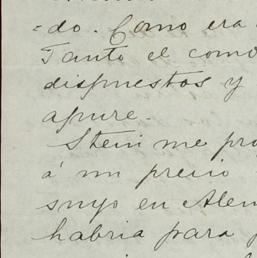 =do. Como era
Tanto el como
dispuestos y
apure.
Stein me pro
á un precio
suyo en Alem
habria para